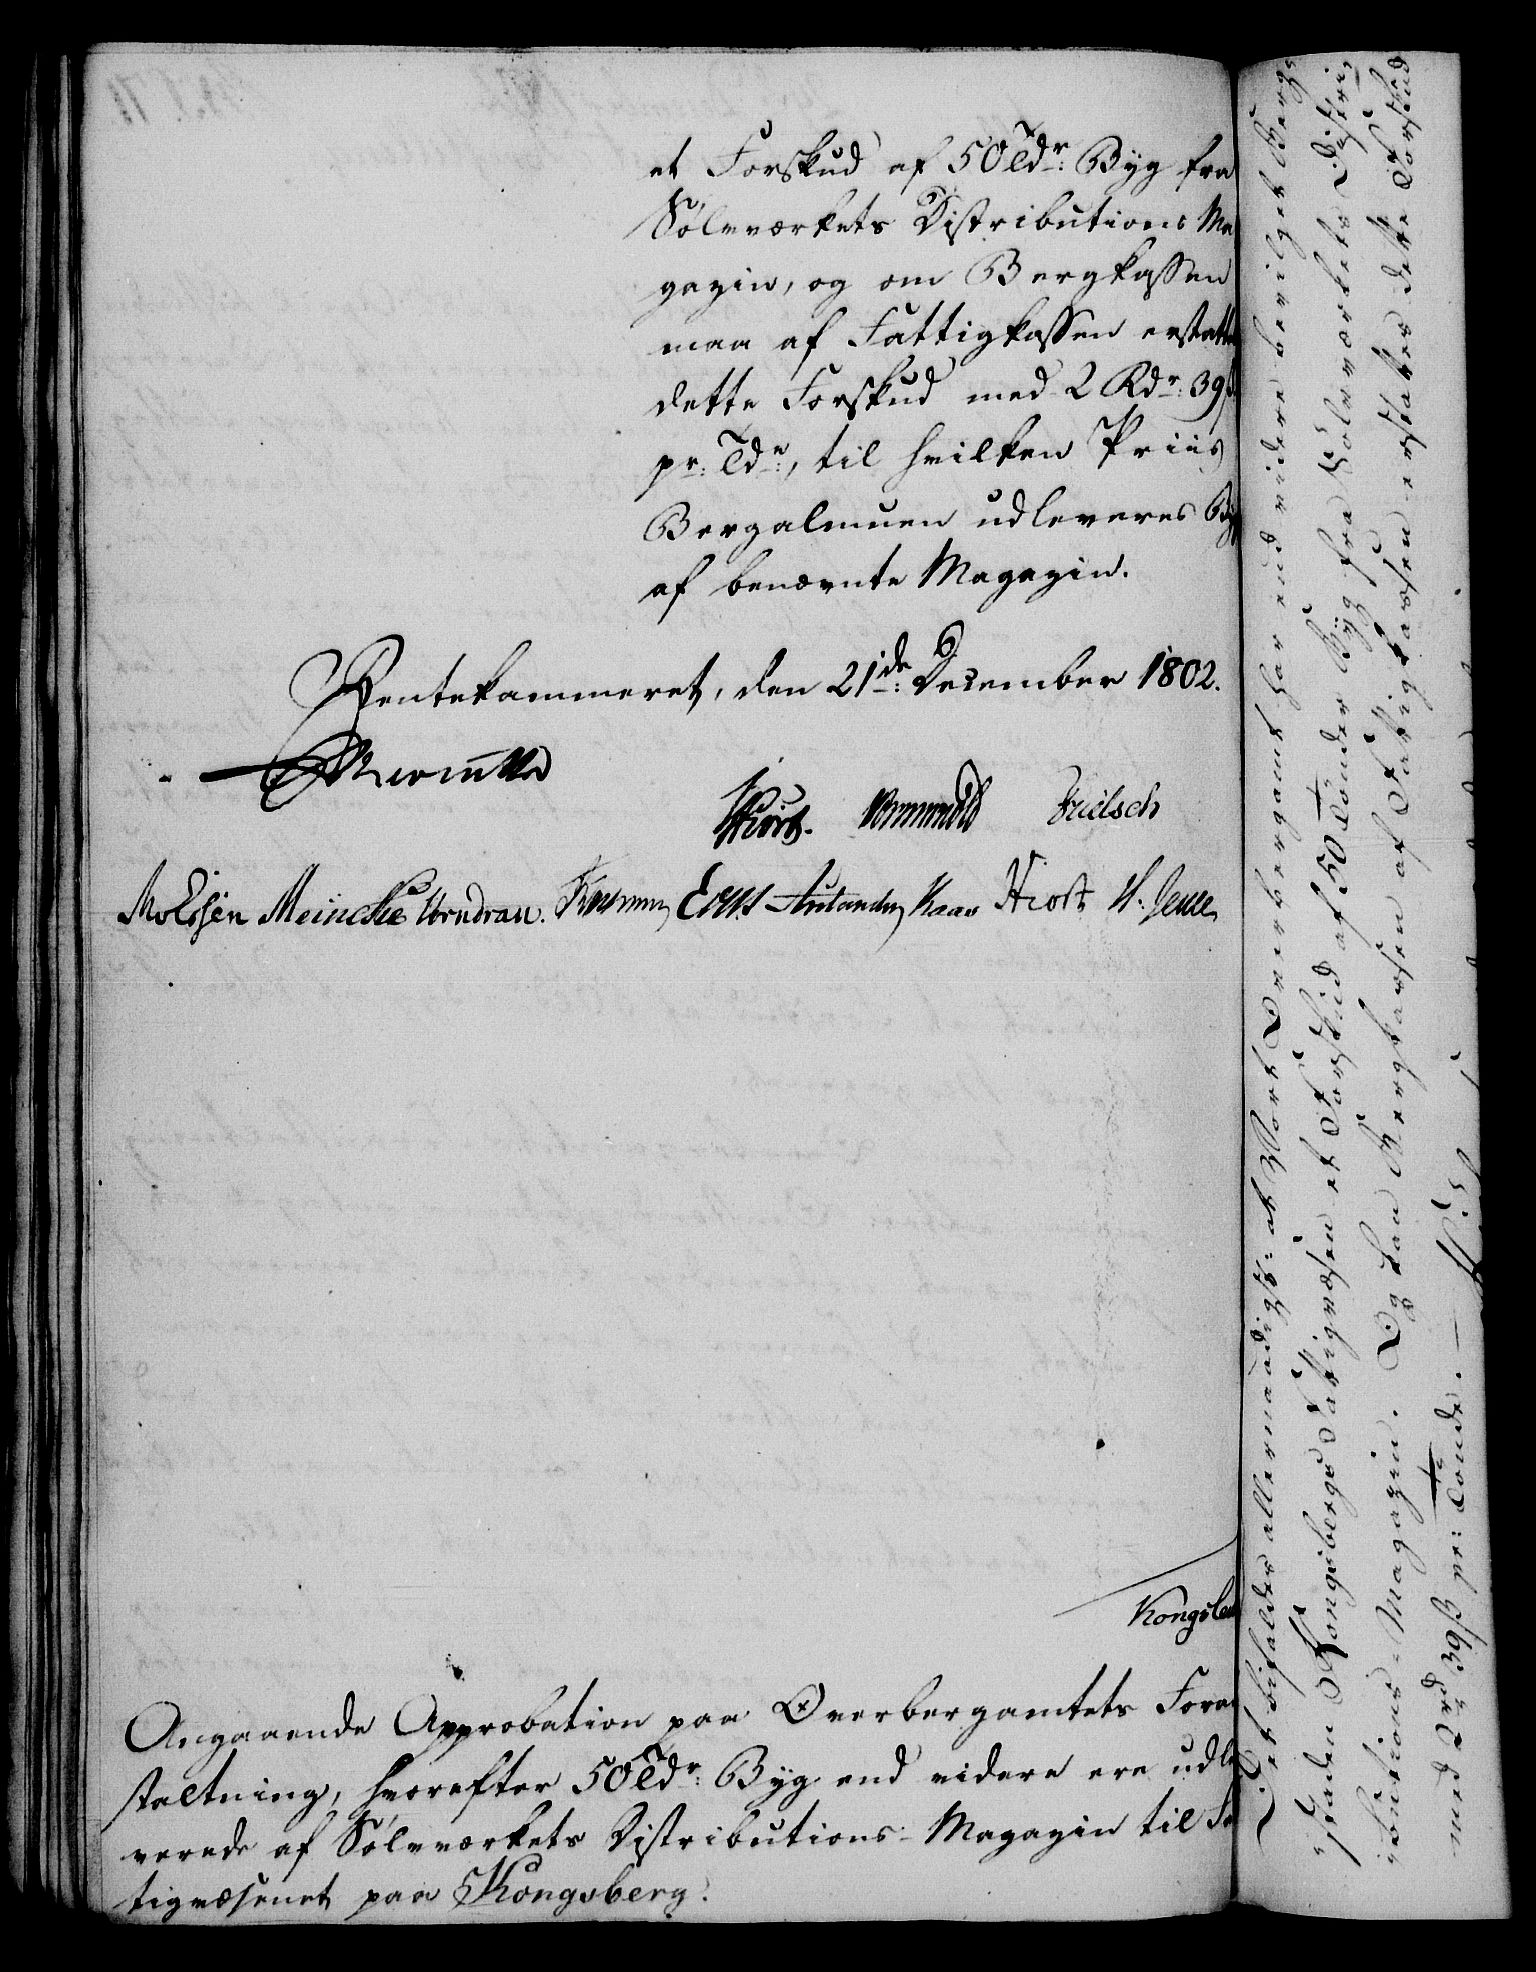 et Forskud af 50 Tdr: Byg fra
Sølvværkets Distributions Ma
gazin, og om Bergkassen
maa af Fattigkassen erstatte
dette Forskud med 2 Rdr: 39 ß
pr: Tde:, til hvilken Priis
Bergalmuen udleveres Byg
af benævnte Magazin.
Rentekammeret, den 21de: December 1802.
Hiort. Wormskiold Frielsch
Meincke Wendrau. Kaas Hiort
Kongsbe
Angaaende Approbation paa Overbergamtets Foran
staltning, hvorefter 50 Tdr: Byg end videre ere udle
verede af Sølvværkets Distributions-Magazin til Fa
tigvæsenet paa Kongsberg.
Det bifaldes allernaadigst: at Vort Overbergamt har end videre bevilget Berg-
staden Kongsbergs Fattigvæsen et Forskud af 50 Tønder Byg fra Sølvværkets Distri-
butions-Magazin. Og kan Bergkassen af Fattigkassen erstattes dette Forskud
med 2 Rd 39 ß pr: Tønde. —